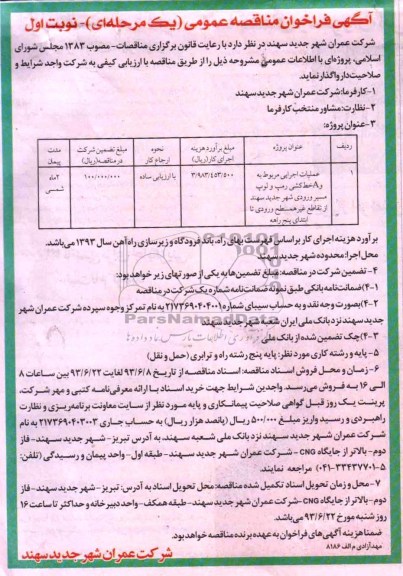 آگهی فراخوان مناقصه عمومی (یک مرحله‌ای)- نوبت اول
شرکت عمران شهر جدید سهند در نظر دارد با رعایت قانون برگزاری مناقصات- مصوب ۱۳۸۳ مجلس شورای
اسلامی، پروژه‌ای با اطلاعات عمومی مشروحه ذیل را از طریق مناقصه با ارزیابی کیفی به شرکت واجد شرایط و
صلاحیت‌دار واگذار نماید.
۱-کارفرما: شرکت عمران شهر جدید سهند
۲-نظارت: مشاور منتخب کارفرما
۳-عنوان پروژه:
ردیف عنوان پروژه مبلغ برآورد هزینه اجرای کار(ریال) نحوه ارجاع کار مبلغ تضمین شرکت در مناقصه(ریال) مدت پیمان
۱ عملیات اجرایی مربوط به
خط‌کشی رمپ و لوپ
مسیر ورودی شهر جدید سهند
از تقاطع غیرهمسطح ورودی تا
ابتدای پنج راهه
۳/۹۸۳/۴۵۳/۵۰۰ با ارزیابی ساده ۱۰۰/۰۰۰/۰۰۰ ۲ماه شمسی
برآورد هزینه اجرای کار براساس فهرست بهای راه، باند فرودگاه و زیرسازی راه آهن سال ۱۳۹۳ می‌باشد.
محل اجرا: محدوده شهر جدید سهند
۴- تضمین شرکت در مناقصه: مبلغ تضمین‌ها به یکی از صورتهای زیر خواهد بود:
۴-۱) ضمانت‌نامه بانکی طبق نمونه ضمانت‌نامه شماره یک شرکت در مناقصه
۴-۲)بصورت وجه نقد و به حساب سیبای شماره ۲۱۷۳۶۹۰۴۰۴۰۰۱ به نام تمرکز وجوه سپرده شرکت عمران شهر
جدید سهند نزد بانک ملی ایران شعبه شهر جدید سهند
ParsNamadData
۴-۳)چک تضمین شده از بانک ملی
۵- پایه و رشته کاری مورد نظر: پایه پنج رشته راه و ترابری (حمل و نقل)
۶- زمان و محل فروش اسناد مناقصه: اسناد مناقصه از تاریخ ۹۳/۶/۸ لغایت ۹۳/۶/۲۲ بین ساعات ۸
الی ۱۶ به فروش می‌رسد. واجدین شرایط جهت خرید اسناد با ارائه معرفی‌نامه کتبی و مهر شرکت،
پرینت یک روز قبل گواهی صلاحیت پیمانکاری و پایه مورد نظر از سایت معاونت برنامه‌ریزی و نظارت
راهبردی و رسید واریز مبلغ ۵۰۰/۰۰۰ ریال (پانصد هزار ریال) به حساب جاری ۲۱۷۳۶۹۰۴۰۳۰۰۳ به نام
شرکت عمران شهر جدید سهند نزد بانک ملی شعبه سهند، به آدرس تبریز- شهر جدید سهند- فاز
دوم- بالاتر از جایگاه CNG - شرکت عمران شهر جدید سهند- طبقه اول- واحد پیمان و رسیدگی (تلفن:
۵-۳۳۴۳۷۷۰۱-۰۴۱) مراجعه نمایند.
۷- محل و زمان تحویل اسناد تکمیل شده مناقصه: محل تحویل اسناد به آدرس: تبریز- شهر جدید سهند- فاز
دوم- بالاتر از جایگاه CNG -شرکت عمران شهر جدید سهند- طبقه همکف- واحد دبیرخانه و حداکثر تا ساعت ۱۶
روز شنبه مورخ ۹۳/۶/۲۲ می‌باشد.
ضمنا هزینه آگهی‌های فراخوان به عهده برنده مناقصه خواهد بود.
مهدآزادی م الف ۸۱۸۶
شرکت عمران شهر جدید سهند